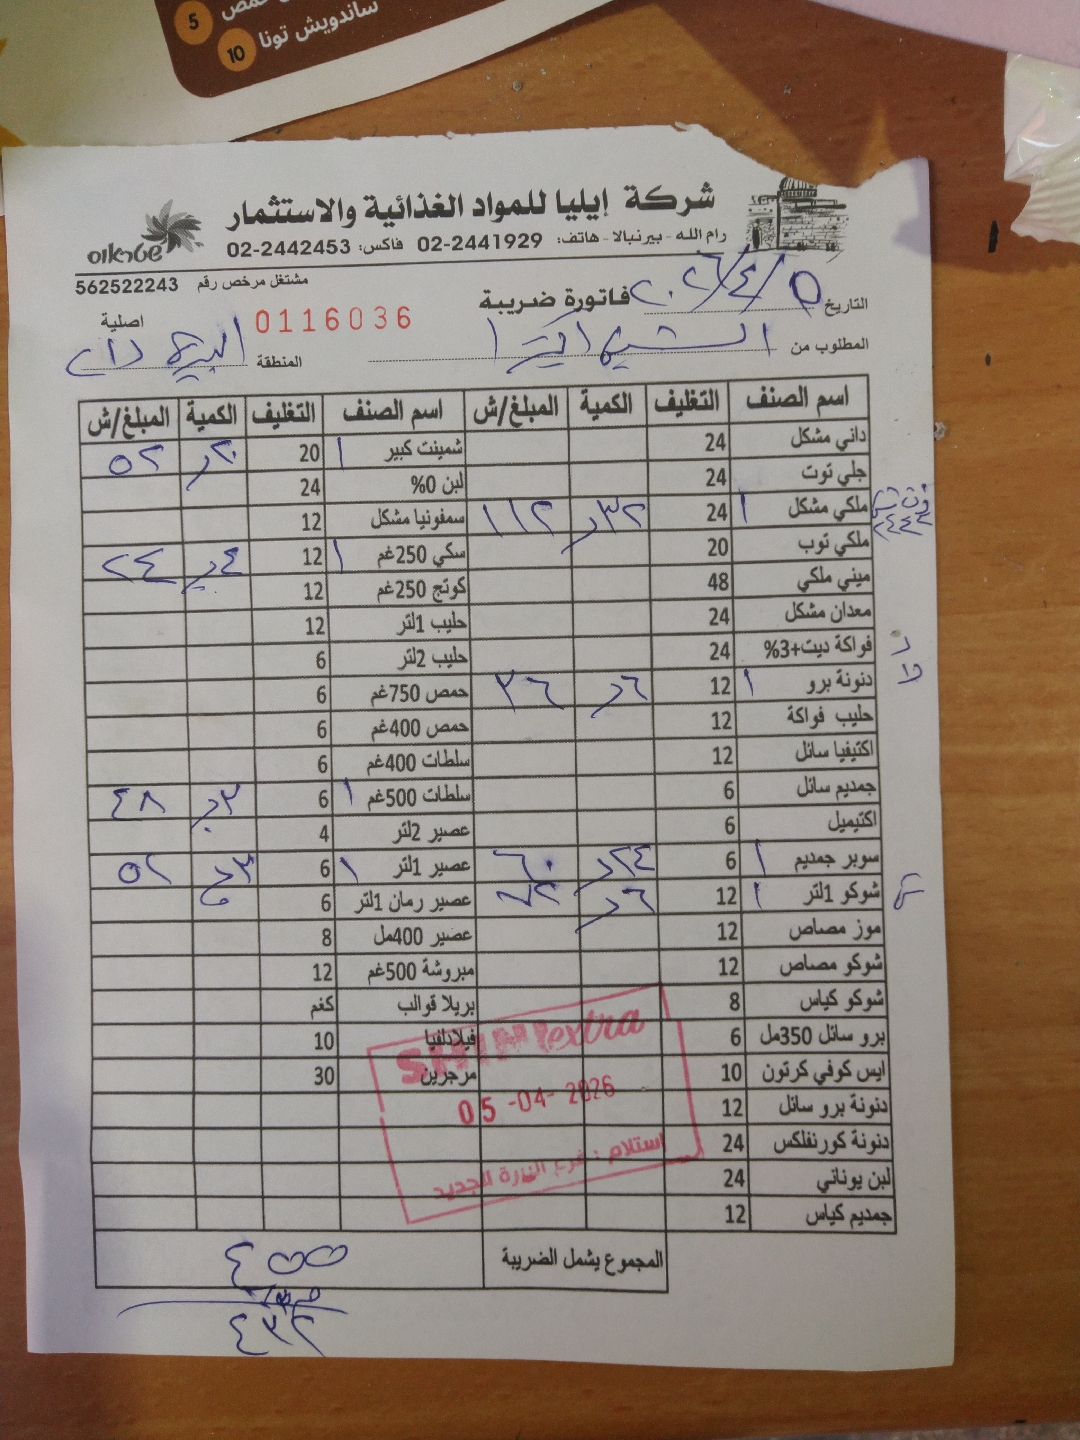 5
ساندويش تونا 10
شركة إيليا للمواد الغذائية والاستثمار
رام الله - بيرنبالا - هاتف: 02-2441929 فاكس: 02-2442453
شتراوس
مشتغل مرخص رقم 562522243
فاتورة ضريبة
التاريخ ٢٠٢٦/٤/٥
اصلية
0116036
المطلوب من
المنطقة
اسم الصنف التغليف الكمية المبلغ/ش اسم الصنف التغليف الكمية المبلغ/ش
داني مشكل 24 شمينت كبير ١ 20 ٥٢
جلي توت 24 لبن 0% 24
ملكي مشكل ١ 24 ٣٢ ١١٢ سمفونيا مشكل 12
ملكي توب 20 سكي 250غم ١ 12 ٢٤
ميني ملكي 48 كوتج 250غم 12
معدان مشكل 24 حليب 1لتر 12
فواكة ديت+3% 24 حليب 2لتر 6
دنونة برو ١ 12 ٣٦ حمص 750غم 6
حليب فواكة 12 حمص 400غم 6
اكتيفيا سائل 12 سلطات 400غم 6
جمديم سائل 6 سلطات 500غم ١ 6 ٤٨
اكتيميل 6 عصير 2لتر 4
سوبر جمديم ١ 6 ٦٠ عصير 1لتر ١ 6 ٥٢
شوكو 1لتر ١ 12 عصير رمان 1لتر 6
موز مصاص 12 عصير 400مل 8
شوكو مصاص 12 مبروشة 500غم 12
شوكو كياس 8 بريلا قوالب كغم
برو سائل 350مل 6 فيلادلفيا 10
ايس كوفي كرتون 10 مرجرين 30
دنونة برو سائل 12
دنونة كورنفلكس 24
لبن يوناني 24
جمديم كياس 12
extra
05-04-2026
استلام : فرع الجديد
المجموع يشمل الضريبة ٤٥٥
٤٣٢